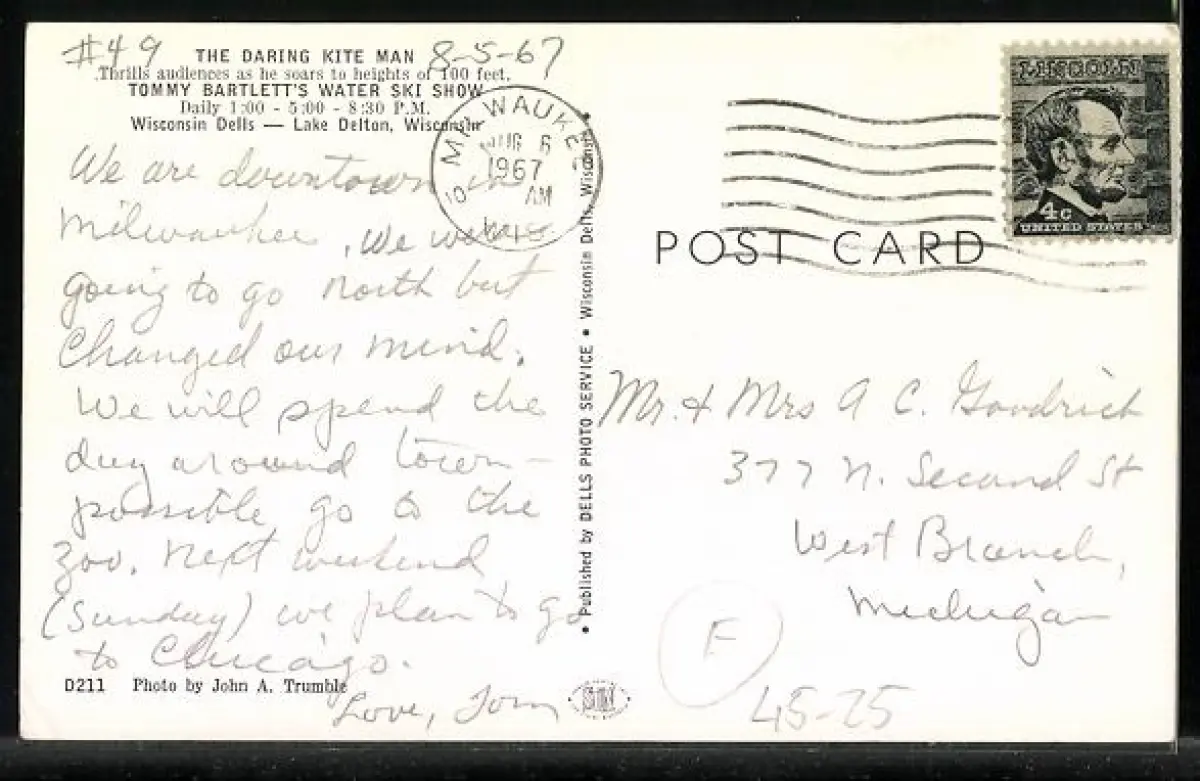 #49 THE DARING KITE MAN 8-5-67
Thrills audiences as he soars to heights of 100 feet.
TOMMY BARTLETT'S WATER SKI SHOW
Daily 1:00 - 5:00 - 8:30 P.M.
Wisconsin Dells — Lake Delton, Wisconsin
We are downtown in
Milwaukee, We were
going to go North but
Changed our mind.
We will spend the
day around town –
possible go to the
Zoo. Next weekend
(Sunday) we plan to go
to Chicago.
Love, Tom
D211 Photo by John A. Trumble
MILWAUKEE
AUG 6
1967
AM
10
WIS
• Published by DELLS PHOTO SERVICE • Wisconsin Dells, Wisconsin •
LINCOLN
4c
UNITED STATES
POST CARD
Mr. & Mrs A C. Goodrich
377 N. Second St
West Branch,
Michigan
F
45-25